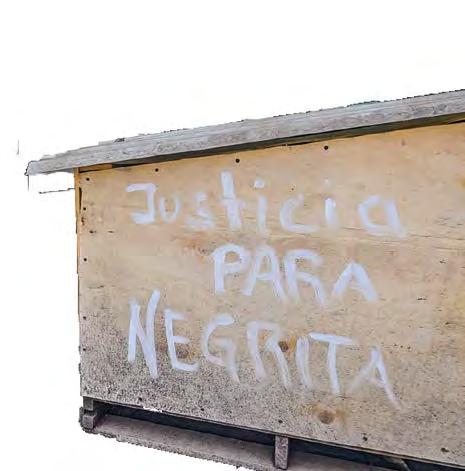 Justicia
PARA
NEGRITA